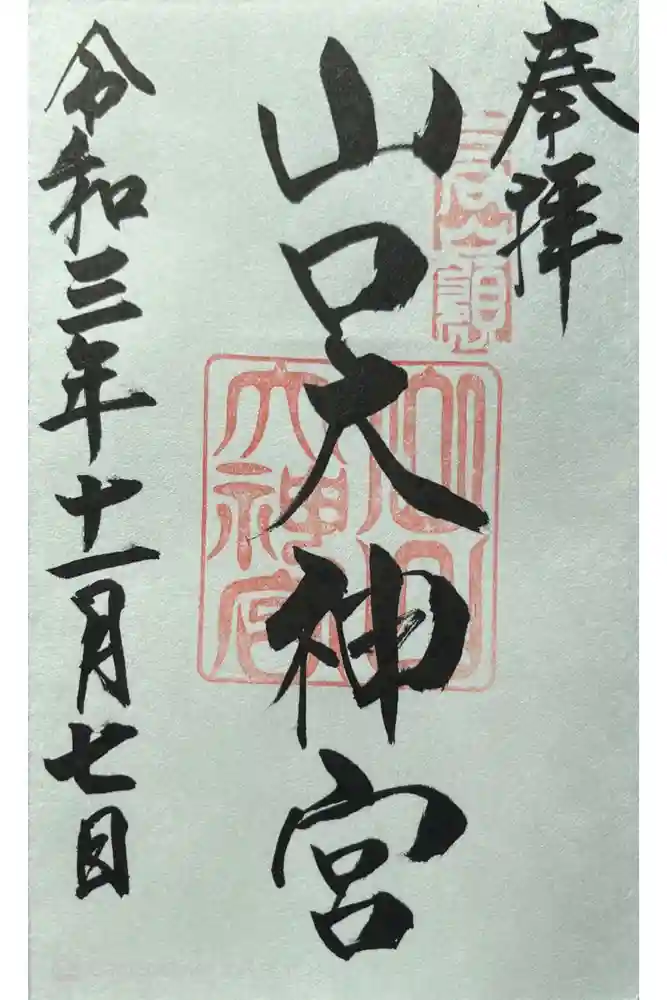 奉拝
山口大神宮
高嶺
山口
大神宮
令和三年十一月七日